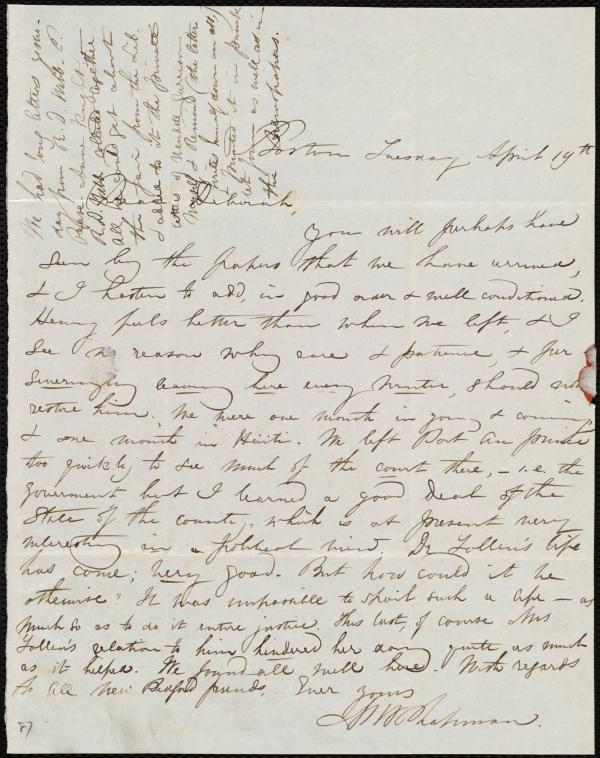 Boston Tuesday April 19th
Dear Deborah,
You will perhaps have
seen by the papers that we have arrived,
& I hasten to add, in good order & well conditioned.
Henry feels better than when we left, & I
see no reason why care & patience, & per
severingly leaving here every winter, should not
restore him. We were one month in going & coming,
& one month in Haiti. We left Port au Prince
too quickly to see much of the court there, – i.e. the
government but I learned a good deal of the
state of the country, which is at present very
interesting in a political view. Dr Follen's life
has come; very good. But how could it be
otherwise? It was impossible to spoil such a life — as
much so as to do it entire justice. This last, of course Mrs
Follen's relation to him hindered her doing quite as much
as it helped. We found all well here. With regards
to all New Bedford friends, Ever yours
M W Chapman.
We had long letters yester-
day from R. D. Webb. &
R.D. Webb
all
the fair from the Lib.
I added to it the printed
letters of Wendell Garrison
& Remond (the latter
& printed it in
as well as in
the newspapers.
27